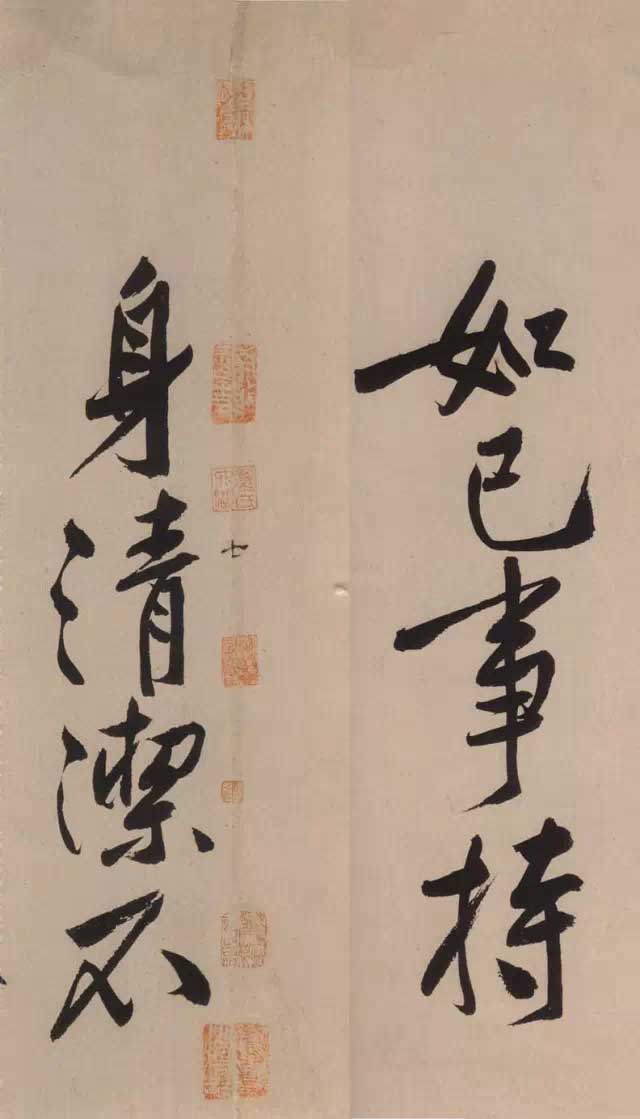 如已事持
七
身清潔不